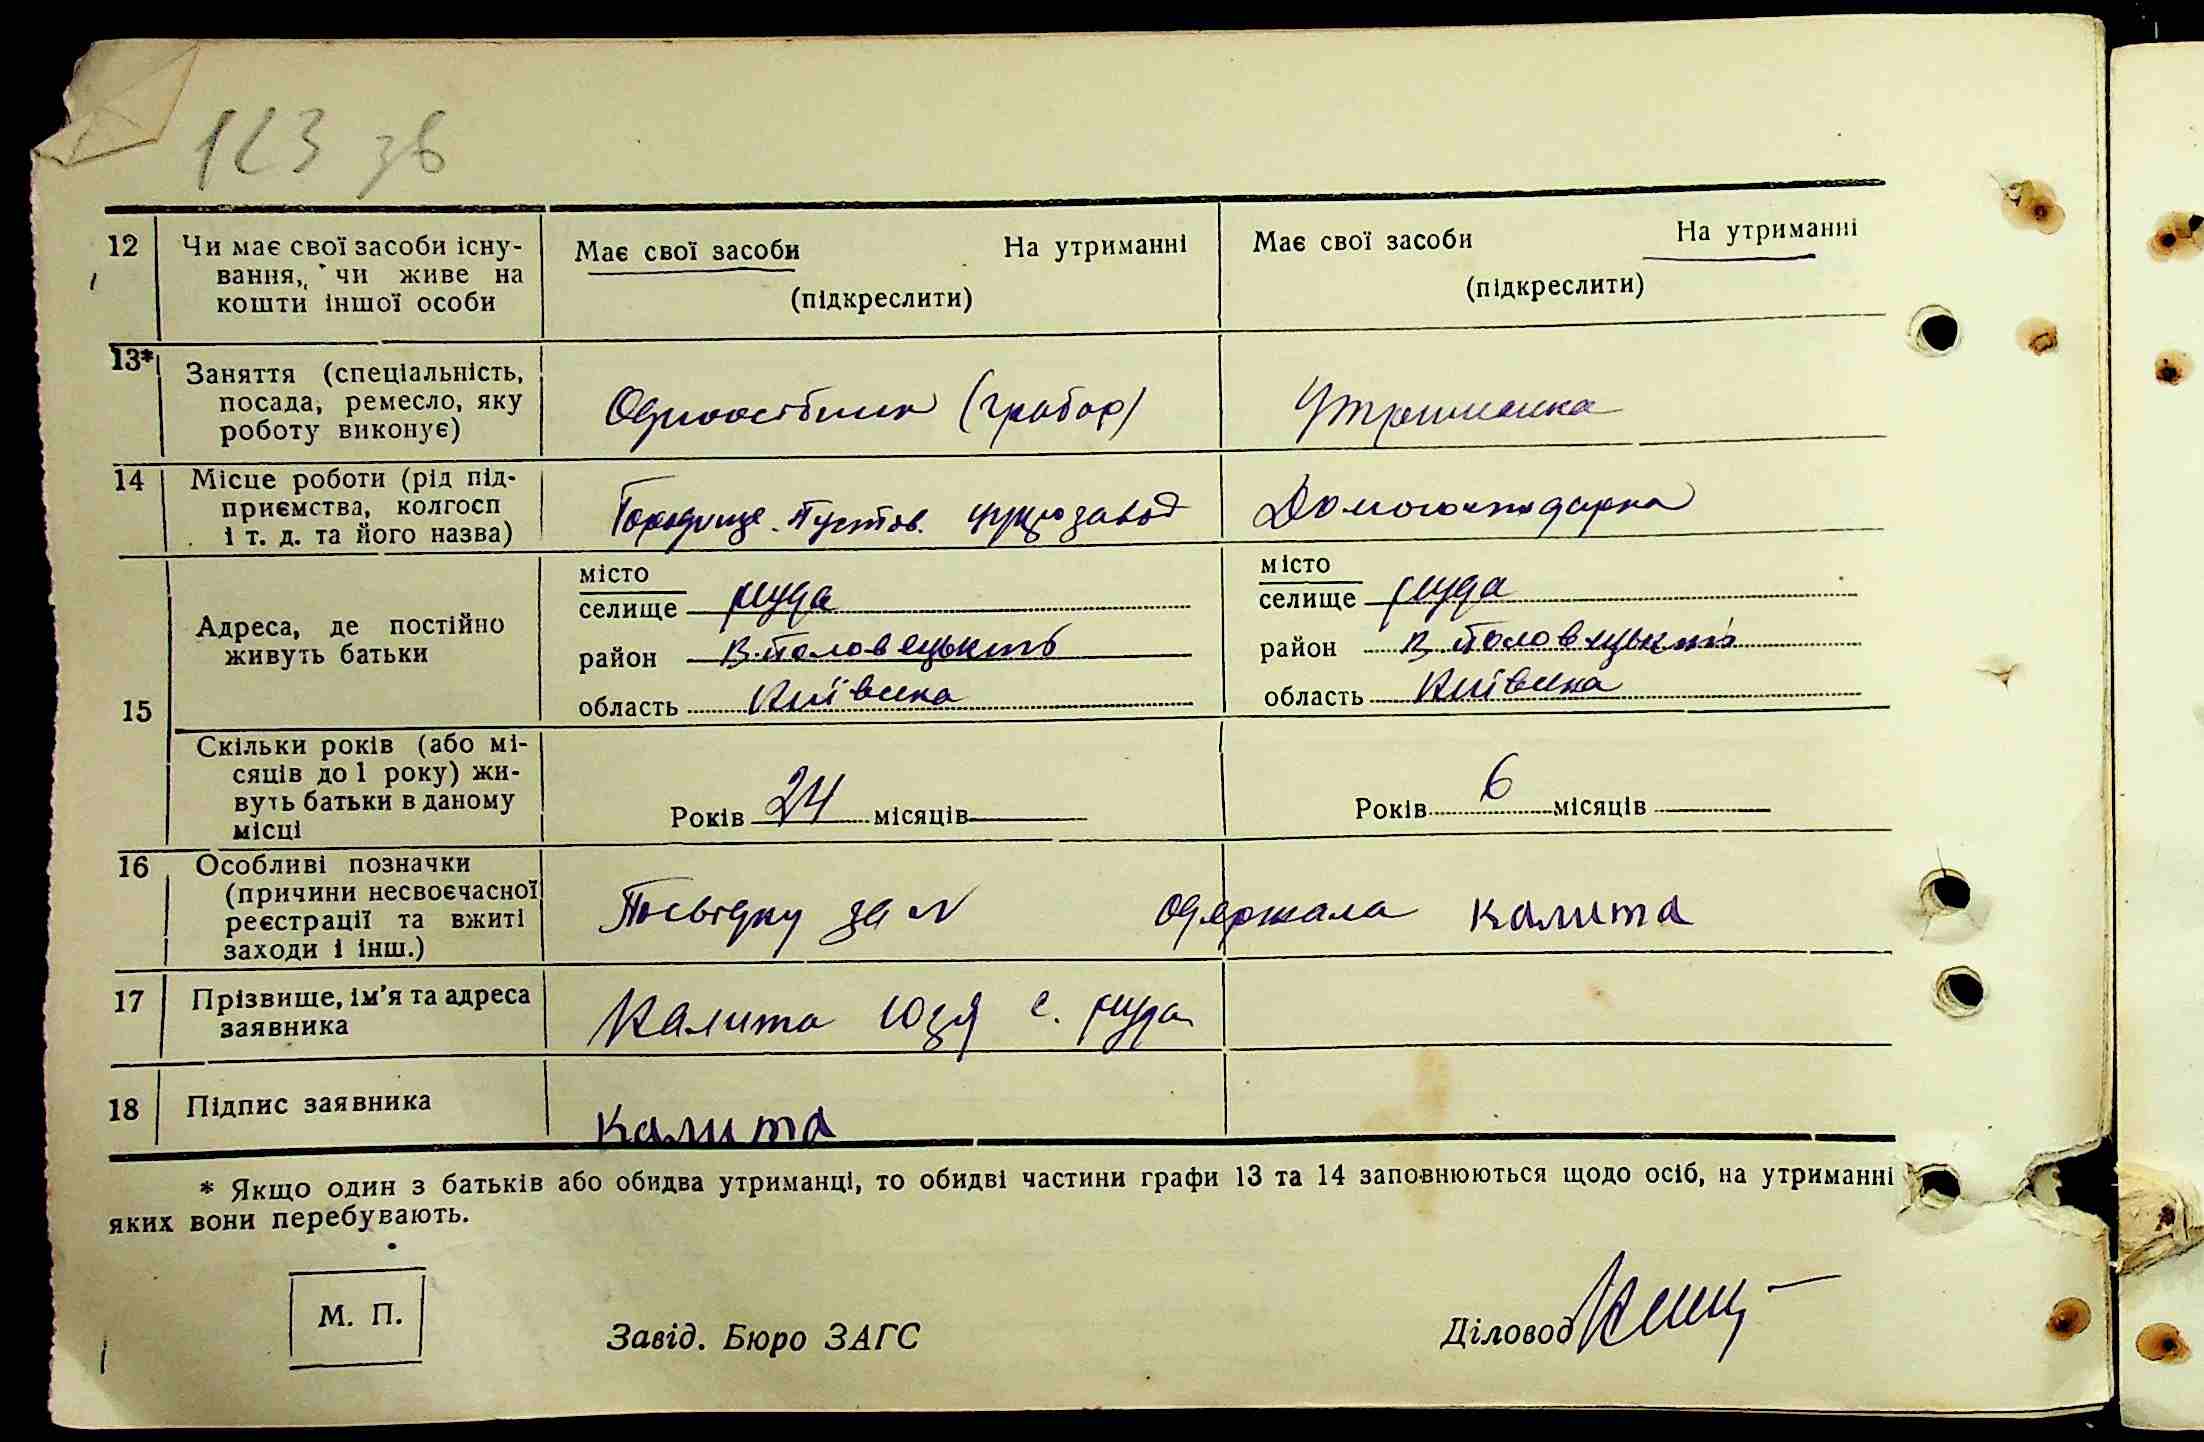 123 зв
12 Чи має свої засоби існу-
вання, чи живе на
кошти іншої особи
Має свої засоби На утриманні
(підкреслити)
Має свої засоби На утриманні
(підкреслити)
13* Заняття (спеціальність,
посада, ремесло, яку
роботу виконує)
Одноосібник (грабар)
Утриманка
14 Місце роботи (рід під-
приємства, колгосп
і т. д. та його назва)
Городище. Пустов. цукрозавод
Домогосподарка
15 Адреса, де постійно
живуть батьки
місто
селище Руда
район В. Половецький
область Київська
місто
селище Руда
район В. Половецький
область Київська
Скільки років (або мі-
сяців до 1 року) жи-
вуть батьки в даному
місці
Років 24 місяців
Років 6 місяців
16 Особливі позначки
(причини несвоєчасної
реєстрації та вжиті
заходи і інш.)
Посвідку за № одержала Калита
17 Прізвище, ім'я та адреса
заявника
Калита Юзя с. Руда
18 Підпис заявника
Калита
* Якщо один з батьків або обидва утриманці, то обидві частини графи 13 та 14 заповнюються щодо осіб, на утриманні
яких вони перебувають.
М. П.
Завід. Бюро ЗАГС
Діловод